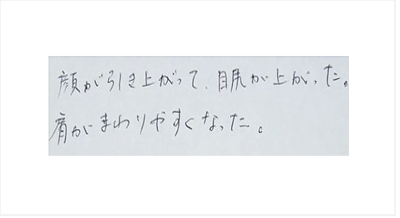 顔が引き上がって、目尻が上がった。
肩がまわりやすくなった。